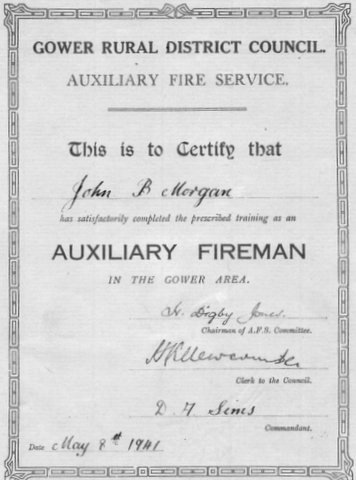 GOWER RURAL DISTRICT COUNCIL.
AUXILIARY FIRE SERVICE.
This is to Certify that
John B Morgan
has satisfactorily completed the prescribed training as an
AUXILIARY FIREMAN
IN THE GOWER AREA.
Digby Jones
Chairman of A.F.S. Committee.
Clerk to the Council.
D. Sims
Commandant.
Date May 8th 1941